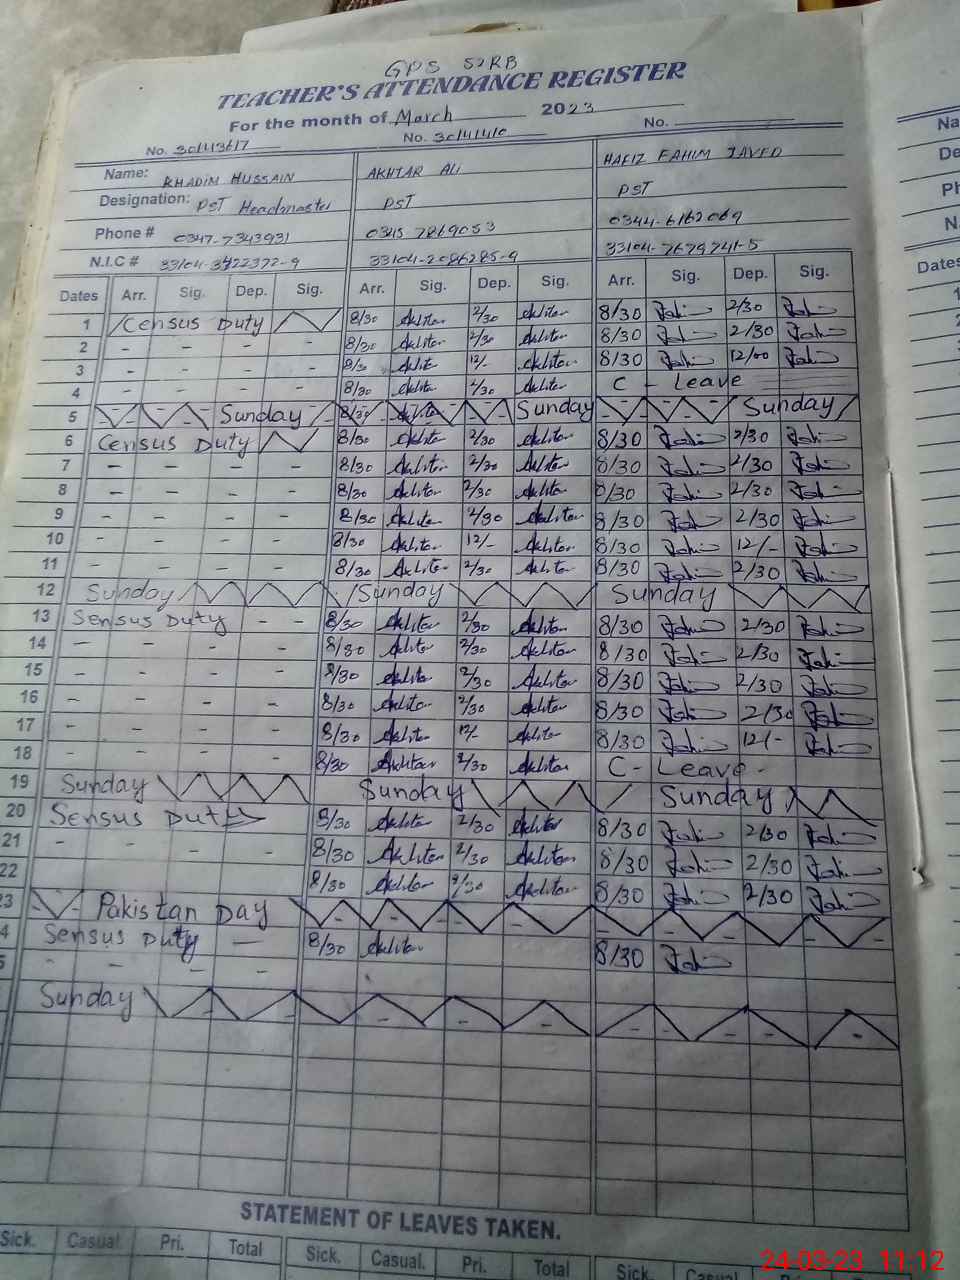 GPS 52RB
TEACHER'S ATTENDANCE REGISTER
For the month of March 2023
No. 30413617 No. 30414410 No.
Name: KHADIM HUSSAIN AKHTAR ALI HAFIZ FAHIM JAVED
Designation: PST Headmaster PST PST
Phone # 0347-7343931 0345 7869053 0344-6162069
N.I.C # 33104-3422372-9 33104-2086285-9 33104-7679741-5
Dates Arr. Sig. Dep. Sig. Arr. Sig. Dep. Sig. Arr. Sig. Dep. Sig.
1 Census Duty 8/30 Akhtar 2/30 Akhtar 8/30 Fahim 2/30 Fahim
2 - - - - 8/30 Akhtar 2/30 Akhtar 8/30 Fahim 2/30 Fahim
3 - - - - 8/30 Akhtar 12/- Akhtar 8/30 Fahim 12/00 Fahim
4 - - - - 8/30 Akhtar 2/30 Akhtar C - Leave
5 Sunday 8/30 Akhtar Sunday Sunday
6 Census Duty 8/30 Akhtar 2/30 Akhtar 8/30 Fahim 2/30 Fahim
7 - - - - 8/30 Akhtar 2/30 Akhtar 8/30 Fahim 2/30 Fahim
8 - - - - 8/30 Akhtar 2/30 Akhtar 8/30 Fahim 2/30 Fahim
9 - - - - 8/30 Akhtar 2/30 Akhtar 8/30 Fahim 2/30 Fahim
10 - - - - 8/30 Akhtar 12/- Akhtar 8/30 Fahim 12/- Fahim
11 - - - - 8/30 Akhtar 2/30 Akhtar 8/30 Fahim 2/30 Fahim
12 Sunday Sunday Sunday
13 Sensus Duty - - 8/30 Akhtar 2/30 Akhtar 8/30 Fahim 2/30 Fahim
14 - - - - 8/30 Akhtar 2/30 Akhtar 8/30 Fahim 2/30 Fahim
15 - - - - 8/30 Akhtar 2/30 Akhtar 8/30 Fahim 2/30 Fahim
16 - - - - 8/30 Akhtar 2/30 Akhtar 8/30 Fahim 2/30 Fahim
17 - - - - 8/30 Akhtar 12/- Akhtar 8/30 Fahim 12/- Fahim
18 - - - - 8/30 Akhtar 2/30 Akhtar C- Leave-
19 Sunday Sunday Sunday
20 Sensus Duty 8/30 Akhtar 2/30 Akhtar 8/30 Fahim 2/30 Fahim
21 - - - - 8/30 Akhtar 2/30 Akhtar 8/30 Fahim 2/30 Fahim
22 8/30 Akhtar 2/30 Akhtar 8/30 Fahim 2/30 Fahim
3 Pakistan Day
4 Sensus Duty - 8/30 Akhtar 8/30 Fahim
5 - - - -
Sunday
STATEMENT OF LEAVES TAKEN.
Sick. Casual. Pri. Total Sick. Casual. Pri. Total Sick. Casual.
Na
De
Ph
N.
Dates
24-03-23 11:12